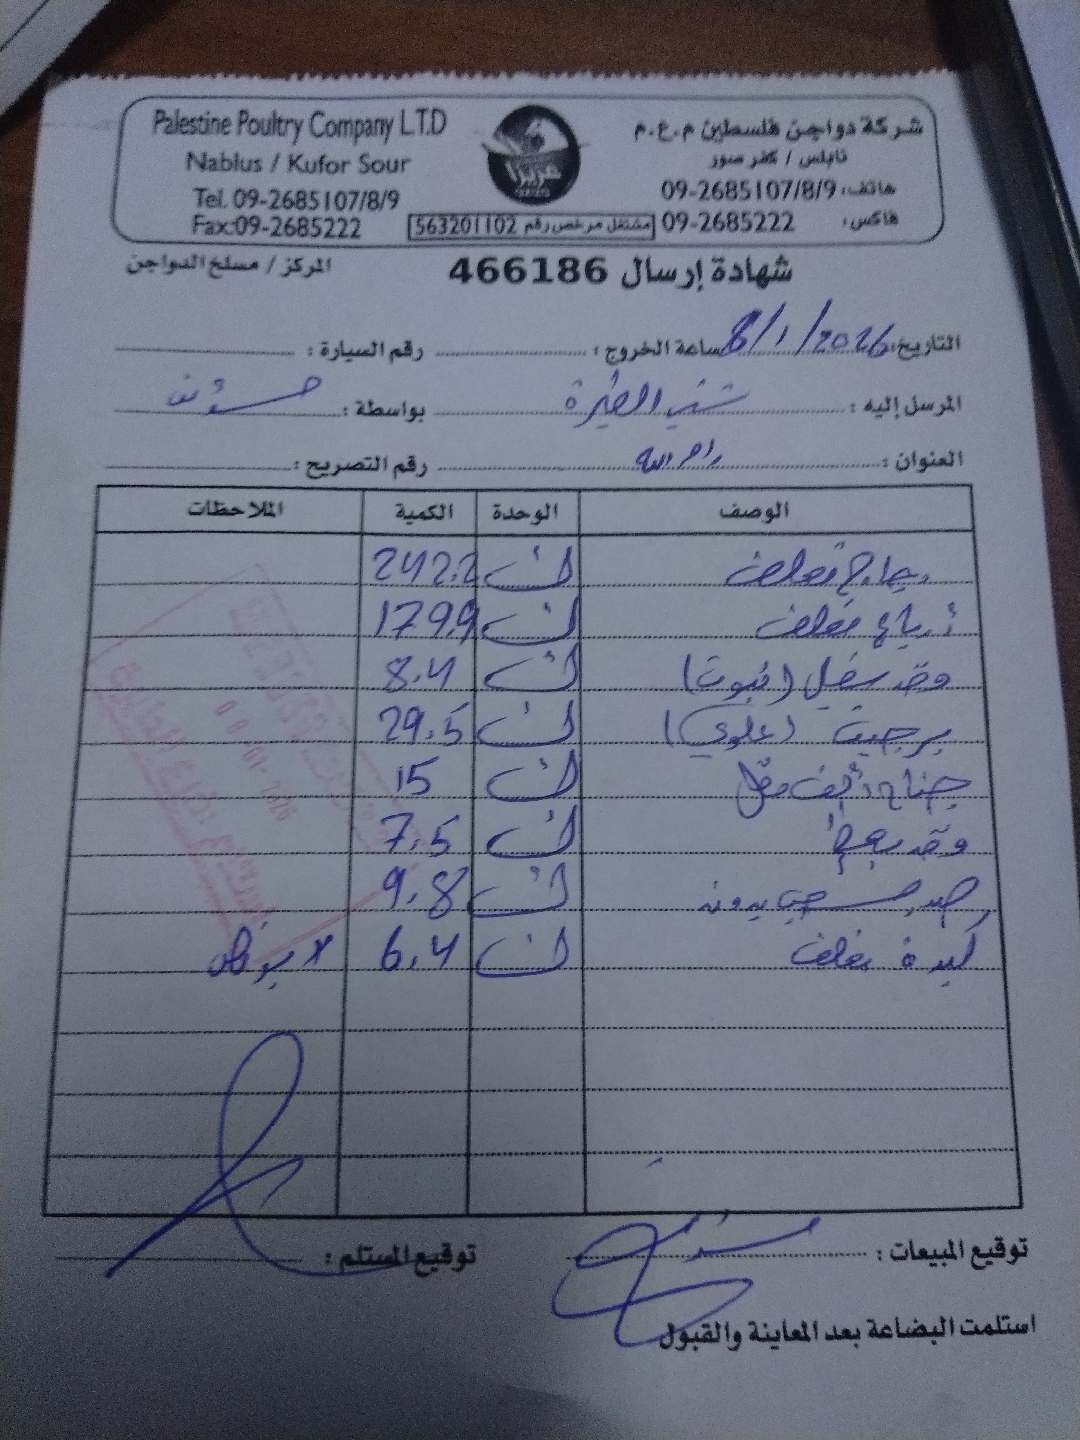 Palestine Poultry Company L.T.D
Nablus / Kufor Sour
Tel. 09-2685107/8/9
Fax:09-2685222
شركة دواجن فلسطين م.ع.م
نابلس / كفر صور
هاتف: 09-2685107/8/9
فاكس: 09-2685222
مشتغل مرخص رقم 563201102
شهادة إرسال 466186
المركز / مسلخ الدواجن
التاريخ: 8/1/2026 ساعة الخروج: رقم السيارة:
المرسل إليه: الطيرة بواسطة:
العنوان: رام الله رقم التصريح:
الوصف الوحدة الكمية الملاحظات
دجاج مغلف ك 242.2
أرباع مغلف ك 179.9
ك 8.4
(علوي) ك 29.5
جناح ك 15
ك 7.5
صدر ك 9.8
كبدة مغلف ك 6.4
توقيع المبيعات: توقيع المستلم:
استلمت البضاعة بعد المعاينة والقبول